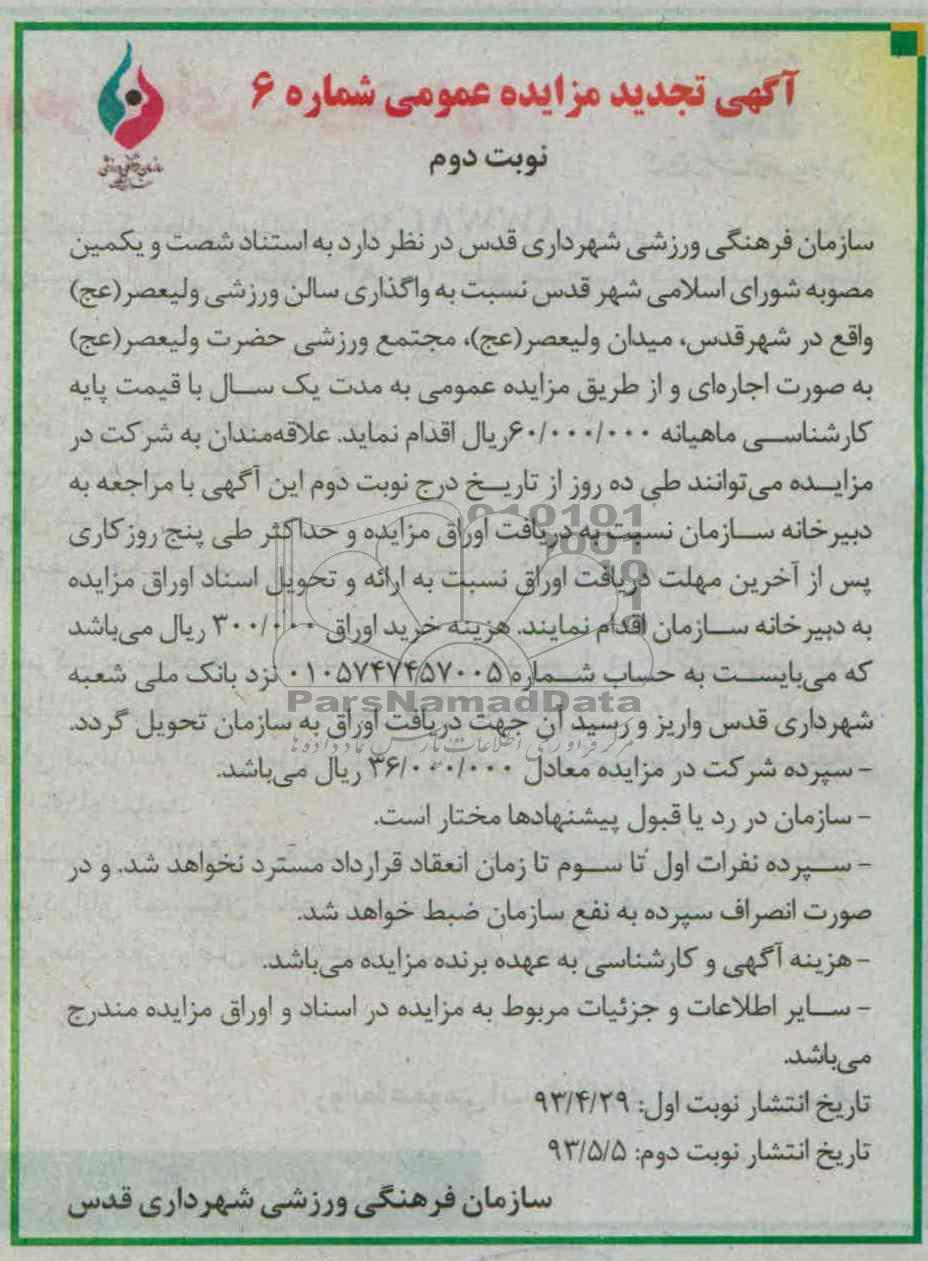 آگهی تجدید مزایده عمومی شماره ۶
نوبت دوم
سازمان فرهنگی ورزشی شهرداری قدس در نظر دارد به استناد شصت و یکمین
مصوبه شورای اسلامی شهر قدس نسبت به واگذاری سالن ورزشی ولیعصر(عج)
واقع در شهرقدس، میدان ولیعصر(عج)، مجتمع ورزشی حضرت ولیعصر(عج)
به صورت اجاره‌ای و از طریق مزایده عمومی به مدت یک سال با قیمت پایه
کارشناسی ماهیانه ۶۰/۰۰۰/۰۰۰ریال اقدام نماید. علاقه‌مندان به شرکت در
مزایده می‌توانند طی ده روز از تاریخ درج نوبت دوم این آگهی با مراجعه به
دبیرخانه سازمان نسبت به دریافت اوراق مزایده و حداکثر طی پنج روزکاری
پس از آخرین مهلت دریافت اوراق نسبت به ارائه و تحویل اسناد اوراق مزایده
به دبیرخانه سازمان اقدام نمایند. هزینه خرید اوراق ۳۰۰/۰۰۰ ریال می‌باشد
که می‌بایست به حساب شماره ۰۱۰۵۷۴۷۴۵۷۰۰۵ نزد بانک ملی شعبه
شهرداری قدس واریز و رسید آن جهت دریافت اوراق به سازمان تحویل گردد.
- سپرده شرکت در مزایده معادل ۳۶/۰۰۰/۰۰۰ ریال می‌باشد.
- سازمان در رد یا قبول پیشنهادها مختار است.
- سپرده نفرات اول تا سوم تا زمان انعقاد قرارداد مسترد نخواهد شد. و در
صورت انصراف سپرده به نفع سازمان ضبط خواهد شد.
- هزینه آگهی و کارشناسی به عهده برنده مزایده می‌باشد.
- سایر اطلاعات و جزئیات مربوط به مزایده در اسناد و اوراق مزایده مندرج
می‌باشد.
تاریخ انتشار نوبت اول: ۹۳/۴/۲۹
تاریخ انتشار نوبت دوم: ۹۳/۵/۵
سازمان فرهنگی ورزشی شهرداری قدس
ParsNamadData
مرکز فرآوری اطلاعات پارس نماد داده ها